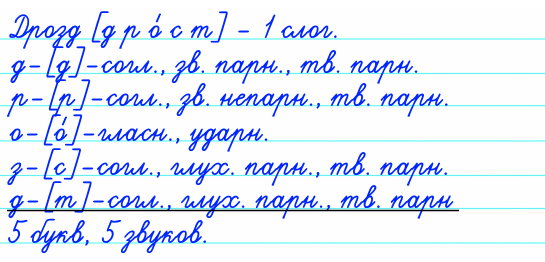 Дрозд [д р о́ с т] – 1 слог.
д – [д] – согл., зв. парн., тв. парн.
р – [р] – согл., зв. непарн., тв. парн.
о – [о́] – гласн., ударн.
з – [с] – согл., глух. парн., тв. парн.
д – [т] – согл., глух. парн., тв. парн
5 букв, 5 звуков.